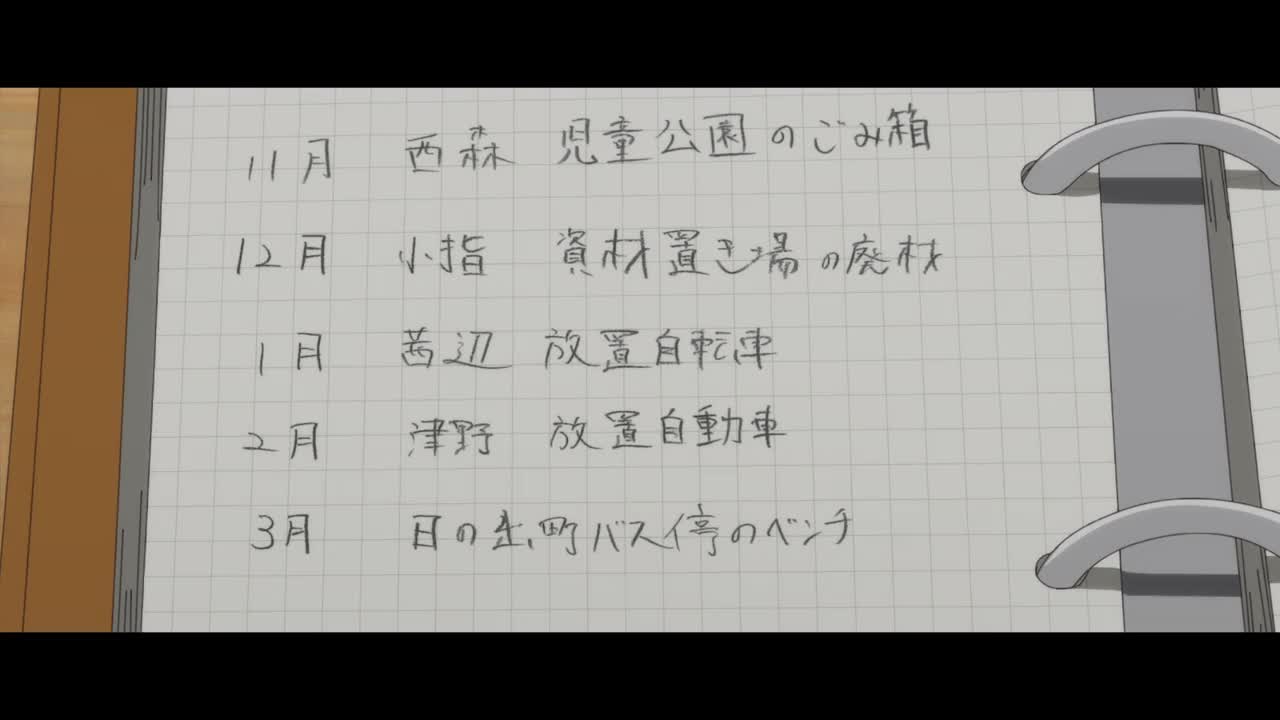 11月 西森 児童公園のごみ箱
12月 小指 資材置き場の廃材
1月 茜辺 放置自転車
2月 津野 放置自動車
3月 日の出町バス停のベンチ